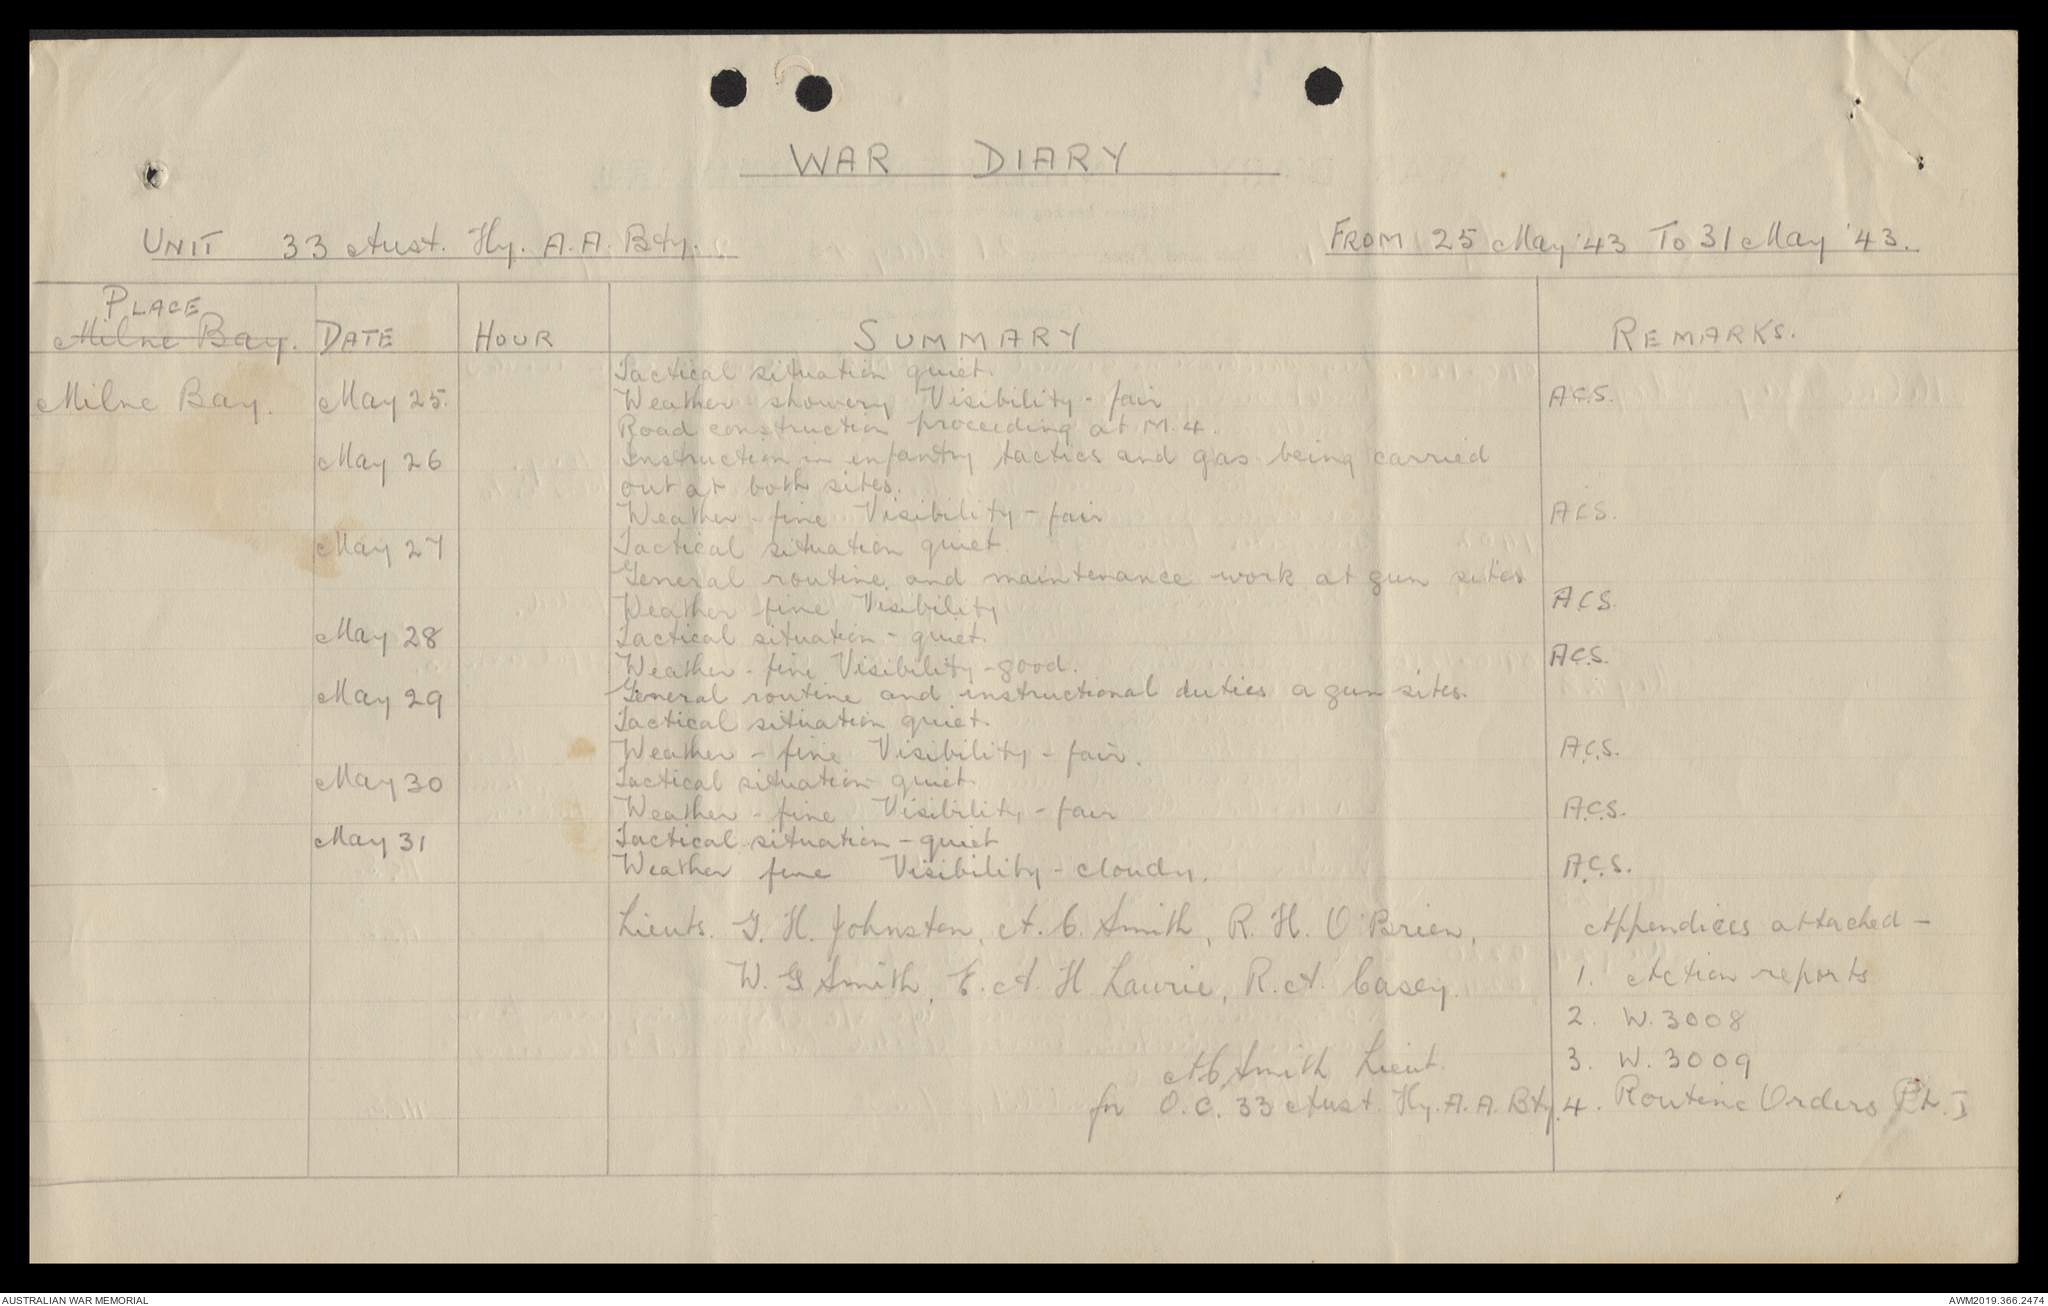 WAR DIARY
UNIT 33 Aust. Hy. A.A. Bty. FROM 25 May '43 To 31 May '43.
PLACE
Milne Bay. DATE HOUR SUMMARY REMARKS.
Tactical situation quiet.
Milne Bay. May 25. Weather - showery Visibility - fair A.C.S.
Road construction proceeding at M.4.
May 26 Instruction in enfantry tactics and gas being carried
out at both sites.
Weather - fine Visibility - fair A.C.S.
May 27 Tactical situation quiet
General routine and maintenance work at gun sites
Weather fine Visibility A.C.S.
May 28 Tactical situation - quiet.
Weather - fine Visibility - good. A.C.S.
May 29 General routine and instructional duties a gun sites.
Tactical situation quiet.
Weather - fine Visibility - fair. A.C.S.
May 30 Tactical situation quiet.
Weather - fine Visibility - fair A.C.S.
May 31 Tactical situation - quiet
Weather fine Visibility - cloudy. A.C.S.
Lieuts. G. H. Johnston, A. C. Smith, R. H. O'Brien, Appendices attached -
W. G Smith, E. A. H Laurie, R. A. Casey. 1. Action reports
2. W. 3008
AC Smith Lieut. 3. W. 3009
for O.C. 33 Aust. Hy. A. A. Bty. 4. Routine Orders Pt. I
AUSTRALIAN WAR MEMORIAL AWM2019.366.2474